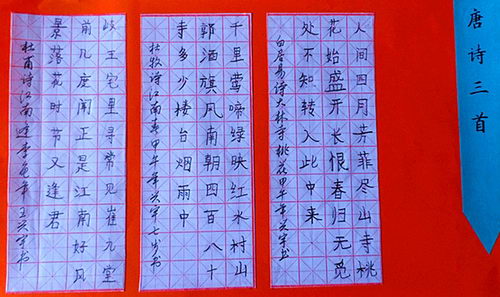 唐诗三首
人间四月芳菲尽山寺桃
花始盛开长恨春归无觅
处不知转入此中来
白居易诗大林寺桃花甲午年兴宇书
千里莺啼绿映红水村山
郭酒旗风南朝四百八十
寺多少楼台烟雨中
杜牧诗江南春甲午年兴宇七岁书
岐王宅里寻常见崔九堂
前几度闻正是江南好风
景落花时节又逢君
杜甫诗江南逢李龟年王兴宇书